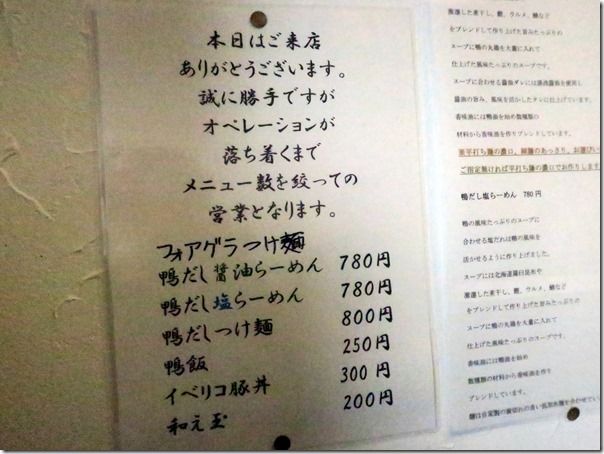 本日はご来店
ありがとうございます。
誠に勝手ですが
オペレーションが
落ち着くまで
メニュー数を絞っての
営業となります。
フォアグラつけ麺
鴨だし醤油らーめん 780円
鴨だし塩らーめん 780円
鴨だしつけ麺 800円
鴨飯 250円
イベリコ豚丼 300円
和え玉 200円
厳選した煮干し、鰹、ウルメ、鯖など
をブレンドして作り上げた旨みたっぷりの
スープに鴨の丸鶏を大量に入れて
仕上げた風味たっぷりのスープです。
スープに合わせる醤油ダレには
醤油の旨み、風味を活かしたタレに仕上げています。
香味油には鴨油を始め数種類の
材料から香味油を作りブレンドしています。
ご指定無ければ平打ち麺の濃口でお作りします
鴨だし塩らーめん 780円
鴨の風味たっぷりのスープに
合わせる塩だれは鴨の風味を
活かせるように作り上げました。
スープには北海道羅臼昆布や
厳選した煮干し、鰹、ウルメ、鯖など
をブレンドして作り上げた旨みたっぷりの
スープに鴨の丸鶏を大量に入れて
仕上げた風味たっぷりのスープです。
香味油には鴨油を始め
数種類の材料から香味油を作り
ブレンドしています。
麺は自家製の